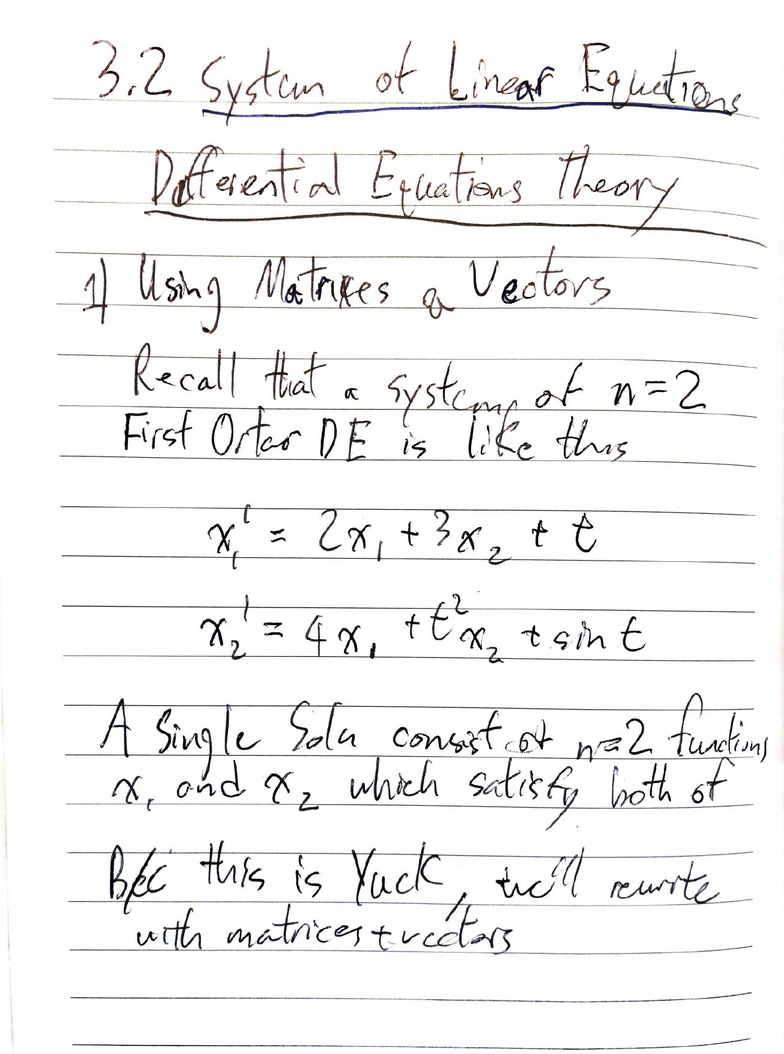 3.2 System of Linear Equations
Differential Equations Theory
1) Using Matrices & Vectors
Recall that a systems of n=2
First Order DE is like this
x₁' = 2x₁ + 3x₂ + t
x₂' = 4x₁ + t²x₂ + sin t
A Single Soln consist of n=2 functions
x₁ and x₂ which satisfy both of
B/c this is Yuck, we'll rewrite
with matrices + vectors